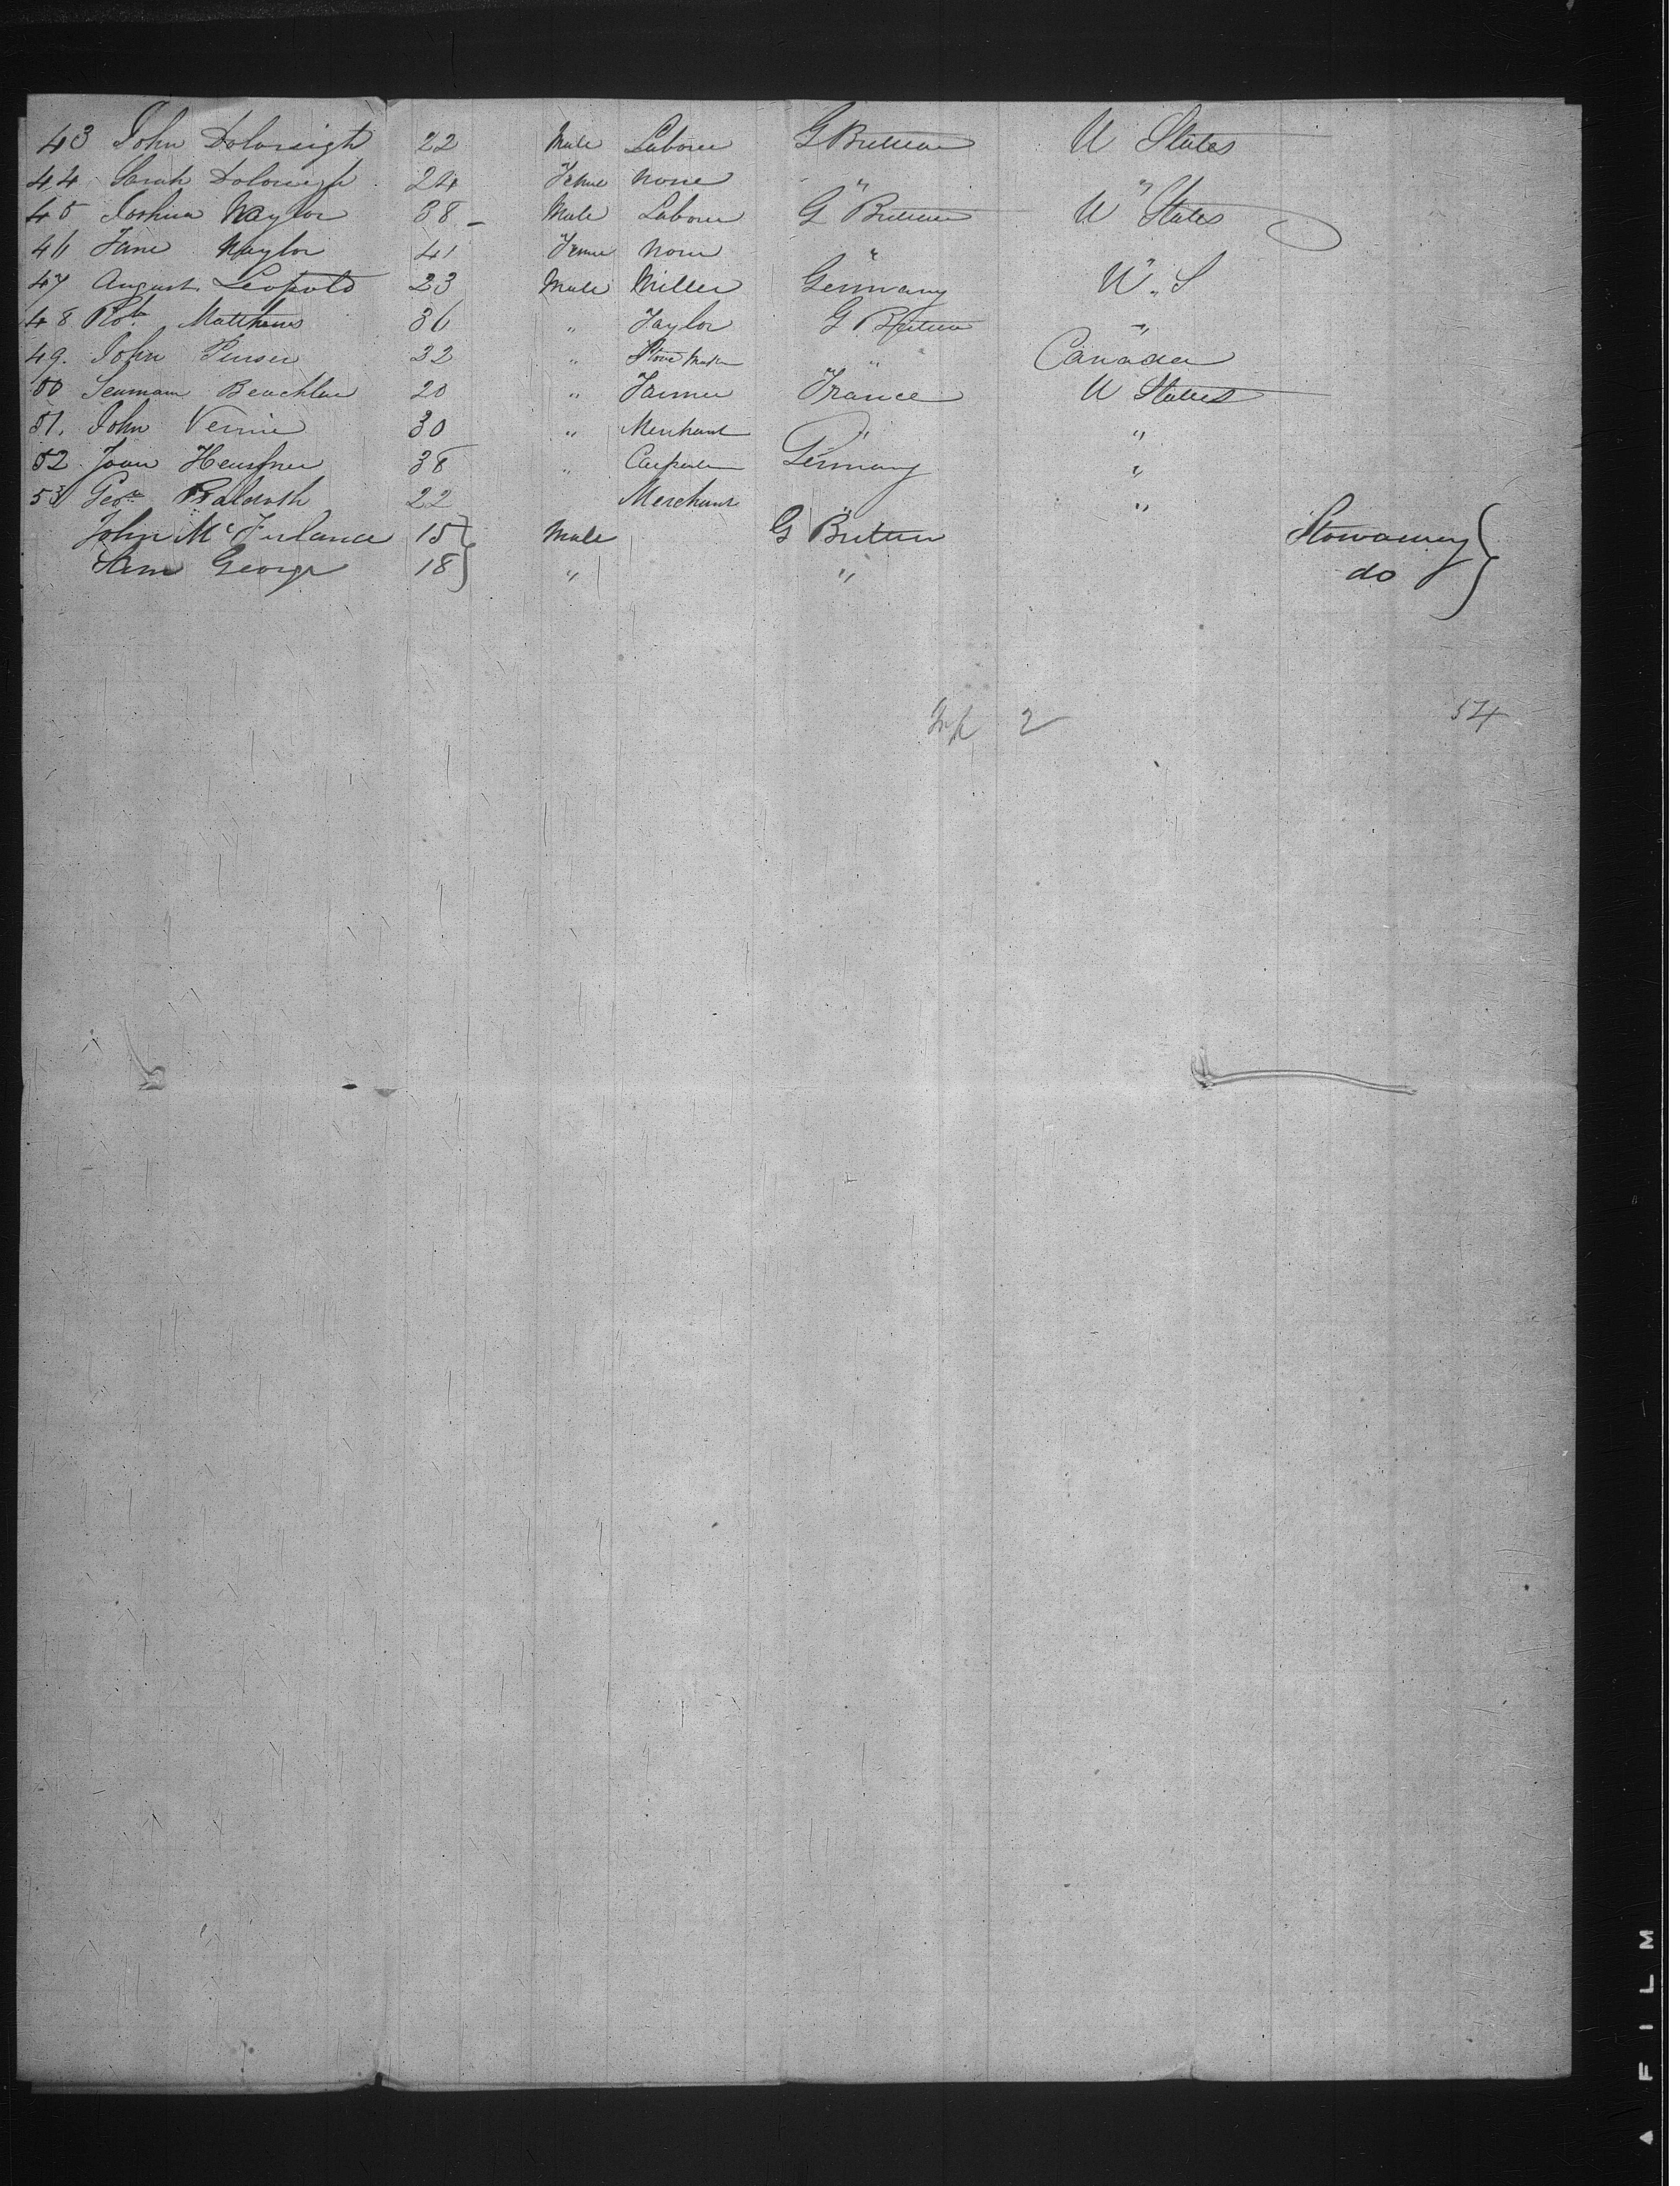 43 John Dolorsigh 22 Male Laborer G Brittain U States
44 Sarah Dolorsigh 24 Femle None " "
45 Joshua Naylor 38 - Male Laborer G Brittain U States
46 Jane Naylor 41 Femle None " "
47 August Leopold 23 Male Miller Germany U.S
48 Robt Matthews 36 " Taylor G Brittain "
49. John Purser 32 " Stove Maker " Canada
50 20 " Farmer France U States
51. John 30 " Merchant " "
52. 38 " Carpenter Germany "
53 Geo. 22 Merchant " "
John McFurlance 15 Male G Brittain Stowaway
Sam George 18 " " do
Inf 2 54
FILM